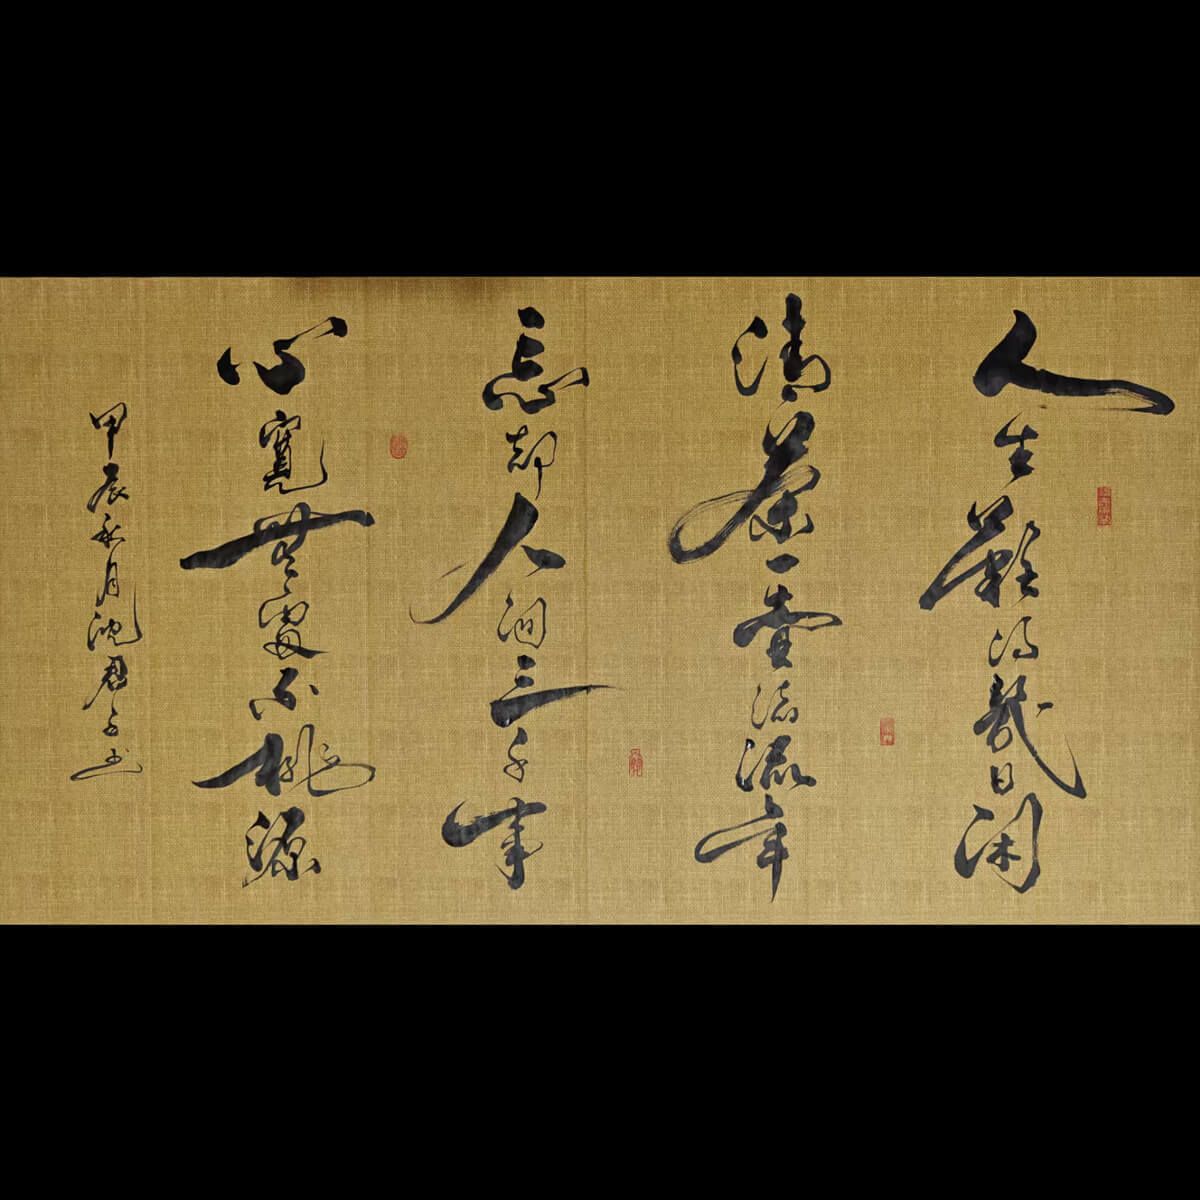 人生難得幾日閑
清茶一壺流年
忘却人間三千事
心寬無處不桃源
甲辰秋月沈君书